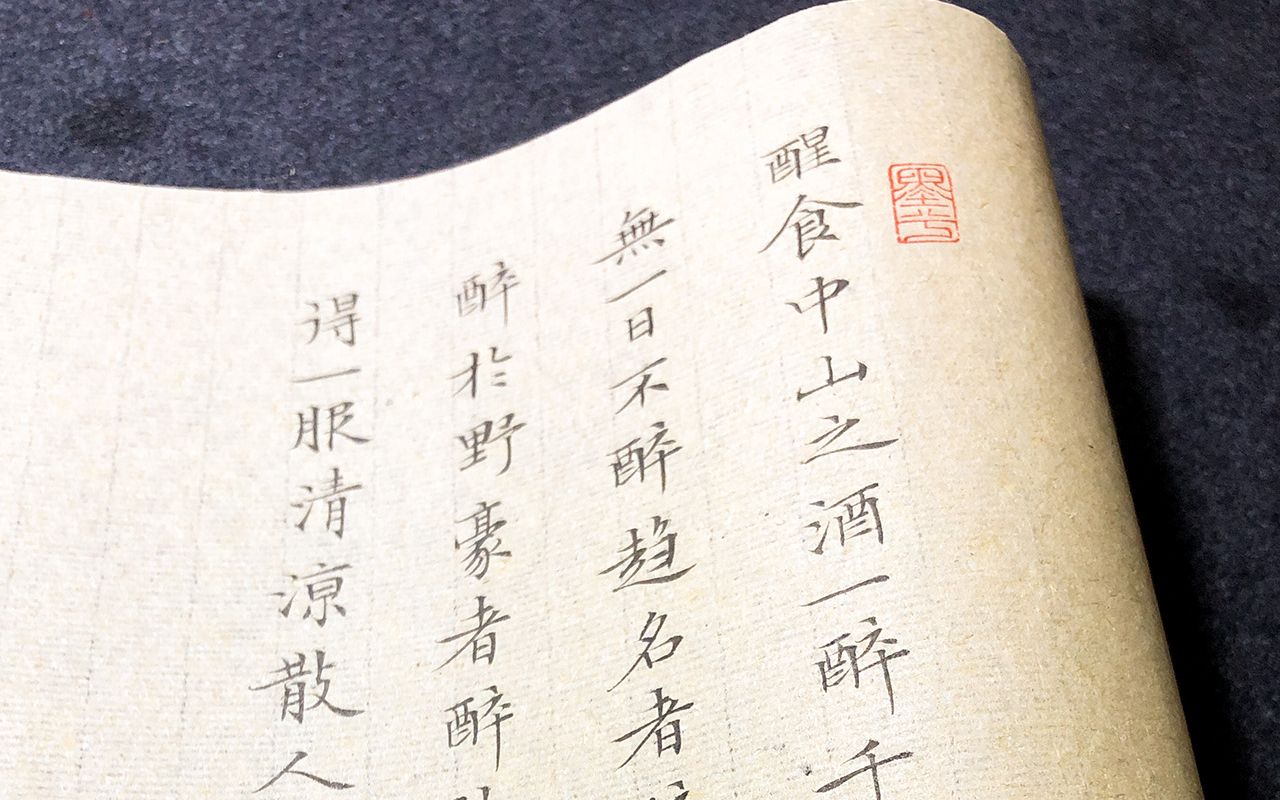 醒食中山之酒一醉千
無一日不醉趨名者
醉於野豪者醉
得一服清涼散人